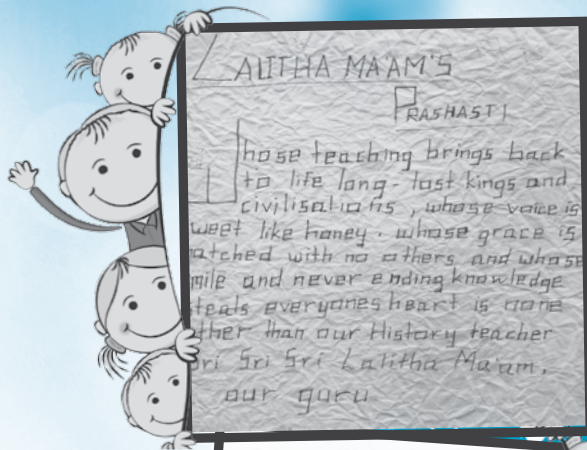 LALITHA MA'AM'S
PRASHASTI
Whose teaching brings back
to life long-lost kings and
civilisations, whose voice is
weet like honey. whose grace is
atched with no others and whose
mile and never ending knowledge
teals everyones heart is none
ther than our History teacher
ri Sri Sri Lalitha Ma'am,
our guru